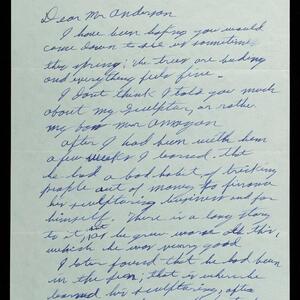 Dear Mr Anderson
I have been hoping you would
come down to see us sometime
this spring; the trees are buding
and everything feels fine.
I dont think I told you much
about my Sculptor, or rather
my boss Mr
After I had been with him
a few weeks I learned, that
he had a bad habit of tricking
people out of money to finance
his sculptoring business and for
himself. There is a long story
to it, but he grew worse at this,
which he was very good
I later found that he had been
in the pen; that is where he
learned his sculptoring, after